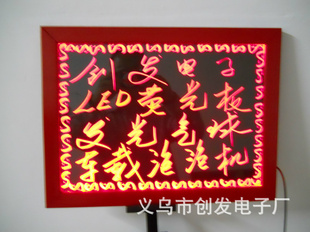 创发电子
LED荧光板
发光气球
车载泡泡机
义乌市创发电子厂